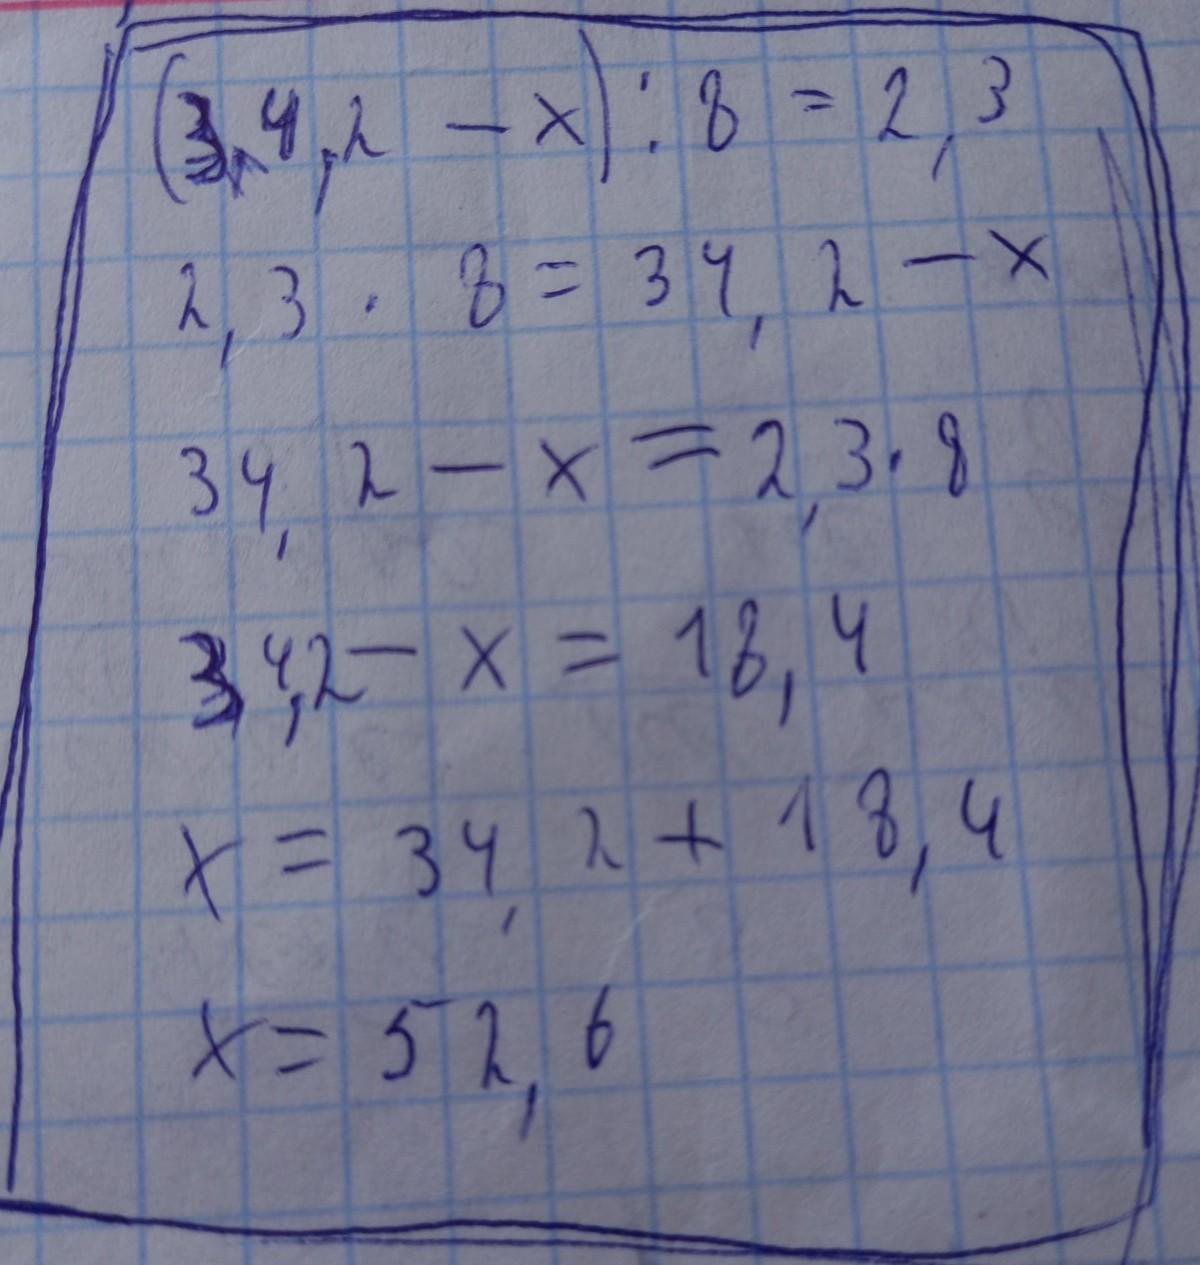 (34,2 - x) : 8 = 2,3
2,3 · 8 = 34,2 - x
34,2 - x = 2,3 · 8
34,2 - x = 18,4
x = 34,2 + 18,4
x = 52,6